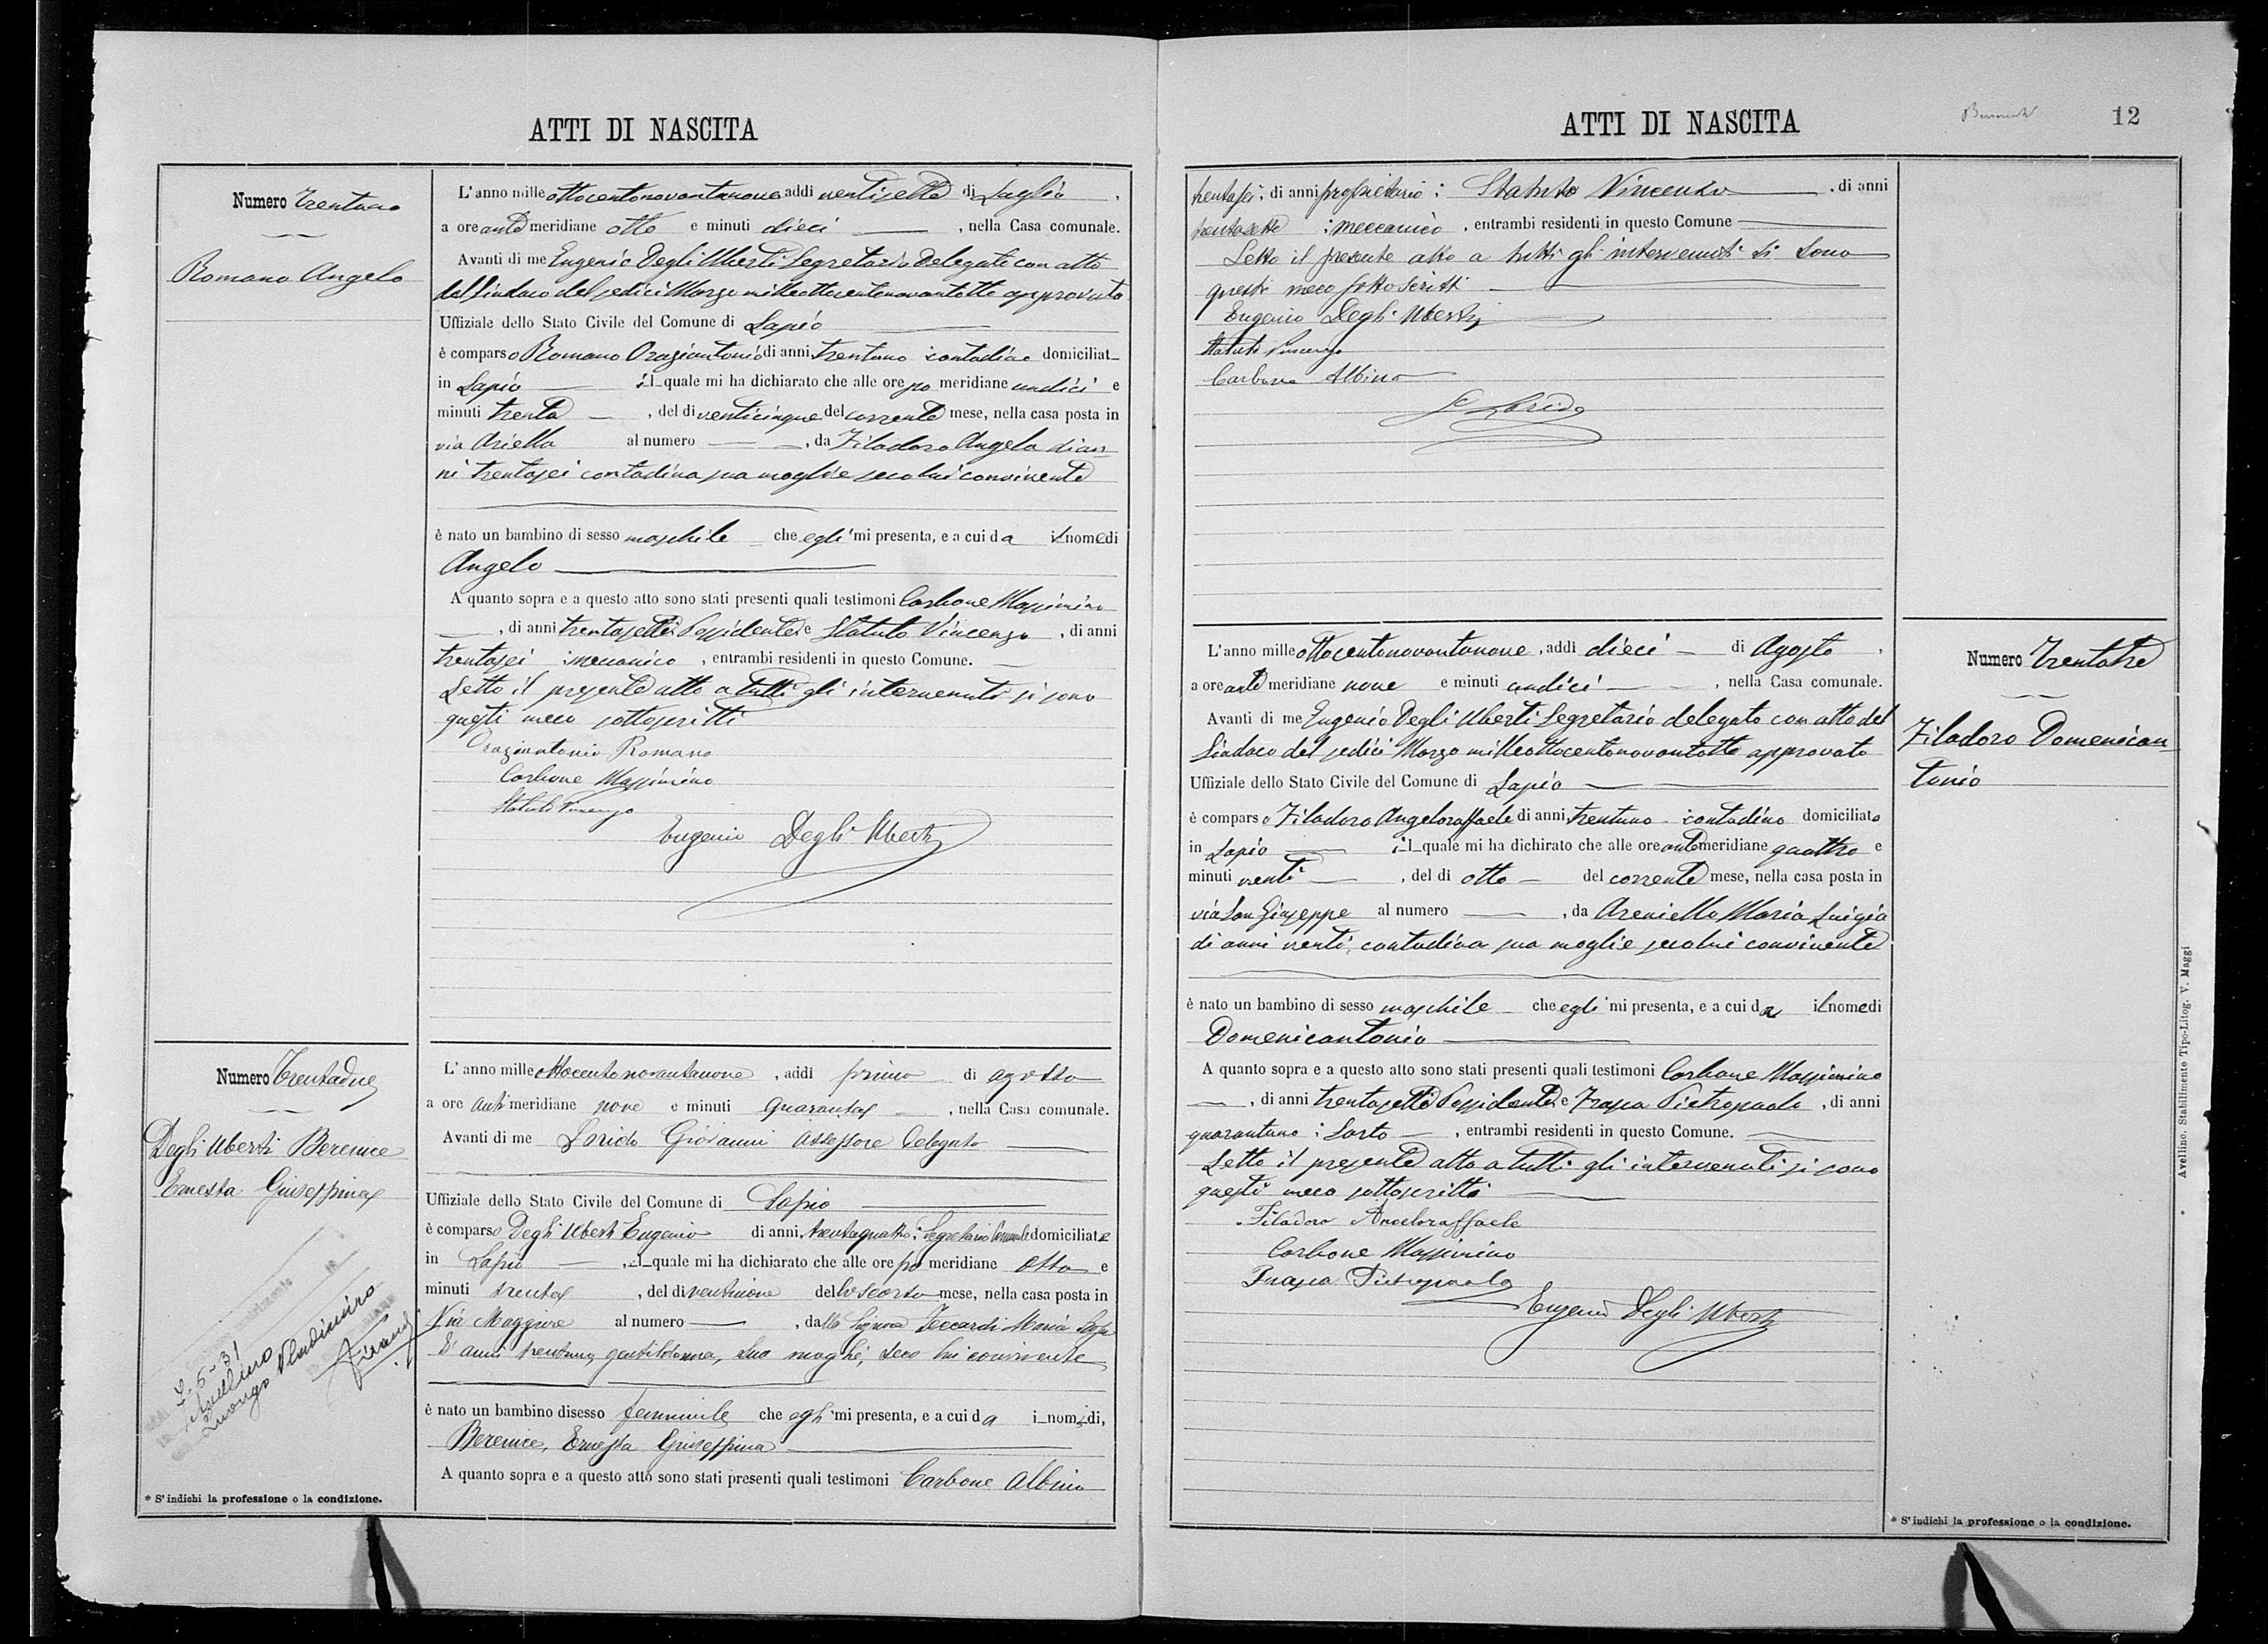 ATTI DI NASCITA
Numero Trentuno
Romano Angelo
L'anno mille ottocentonovantanove addì ventisette di Luglio,
a ore ante meridiane otto e minuti dieci, nella Casa comunale.
Avanti di me Eugenio Degli Uberti Segretario Delegato con atto
del Sindaco del sedici Marzo milleottocentonovantotto approvato
Uffiziale dello Stato Civile del Comune di Lapio
è comparso Romano Oraziantonio di anni trentuno contadino domiciliat
in Lapio il quale mi ha dichiarato che alle ore po meridiane undici e
minuti trenta, del dì venticinque del corrente mese, nella casa posta in
via Ariella al numero, da Filadoro Angela di an
ni trentasei contadina sua moglie seco lui convivente
è nato un bambino di sesso maschile che egli mi presenta, e a cui da il nome di
Angelo
A quanto sopra e a questo atto sono stati presenti quali testimoni Carbone Massimino
, di anni trentasette Possidente e Statuto Vincenzo, di anni
trentasei meccanico, entrambi residenti in questo Comune.
Letto il presente atto a tutti gli intervenuti si sono
questi meco sottoscritti
Oraziantonio Romano
Carbone Massimino
Statuto Vincenzo
Eugenio Degli Uberti
Numero Trentadue
Degli Uberti Berenice
Ernesta Giuseppina
2-5-31
Avellino
Luongo Vladimiro
L'anno mille ottocentonovantanove, addì primo di agosto
a ore anti meridiane nove e minuti quaranta, nella Casa comunale.
Avanti di me Giovanni assessore delegato
Uffiziale dello Stato Civile del Comune di Lapio
è comparso Degli Uberti Eugenio di anni trentaquattro: Segretario Comunale domiciliato
in Lapio, il quale mi ha dichiarato che alle ore po meridiane otto e
minuti trenta, del dì ventinove dello scorso mese, nella casa posta in
Via Maggiore al numero, dalla Signora Maria
d'anni trentuno, gentildonna, sua moglie, seco lui convivente
è nato un bambino di sesso femminile che egli mi presenta, e a cui da i nomi di,
Berenice, Ernesta Giuseppina
A quanto sopra e a questo atto sono stati presenti quali testimoni Carbone Albino
* S'indichi la professione o la condizione.
ATTI DI NASCITA
12
trentasei; di anni proprietario; Statuto Vincenzo, di anni
trentasette; meccanico, entrambi residenti in questo Comune
Letto il presente atto a tutti gli intervenuti si sono
questi meco sottoscritti
Eugenio Degli Uberti
Statuto Vincenzo
Carbone Albino
L'anno mille ottocentonovantanove, addì dieci di Agosto,
a ore ante meridiane nove e minuti undici, nella Casa comunale.
Avanti di me Eugenio Degli Uberti Segretario delegato con atto del
Sindaco del sedici Marzo milleottocentonovantotto approvato
Uffiziale dello Stato Civile del Comune di Lapio
è comparso Filadoro Angeloraffaele di anni trentuno contadino domiciliato
in Lapio il quale mi ha dichirato che alle ore ante meridiane quattro e
minuti venti, del dì otto del corrente mese, nella casa posta in
via San Giuseppe al numero, da Areniello Maria Luigia
di anni venti, contadina sua moglie seco lui convivente
è nato un bambino di sesso maschile che egli mi presenta, e a cui da il nome di
Domenicantonio
A quanto sopra e a questo atto sono stati presenti quali testimoni Carbone Massimino
, di anni trentasette Possidente e Pietropaolo, di anni
quarantuno: Sarto, entrambi residenti in questo Comune.
Letto il presente atto a tutti gli intervenuti si sono
questi meco sottoscritti
Filadoro Angeloraffaele
Carbone Massimino
Pietropaolo
Eugenio Degli Uberti
Numero Trentatre
Filadoro Domenican
tonio
* S'indichi la professione o la condizione.
Avellino. Stabilimento Tipo-Litog. V. Maggi